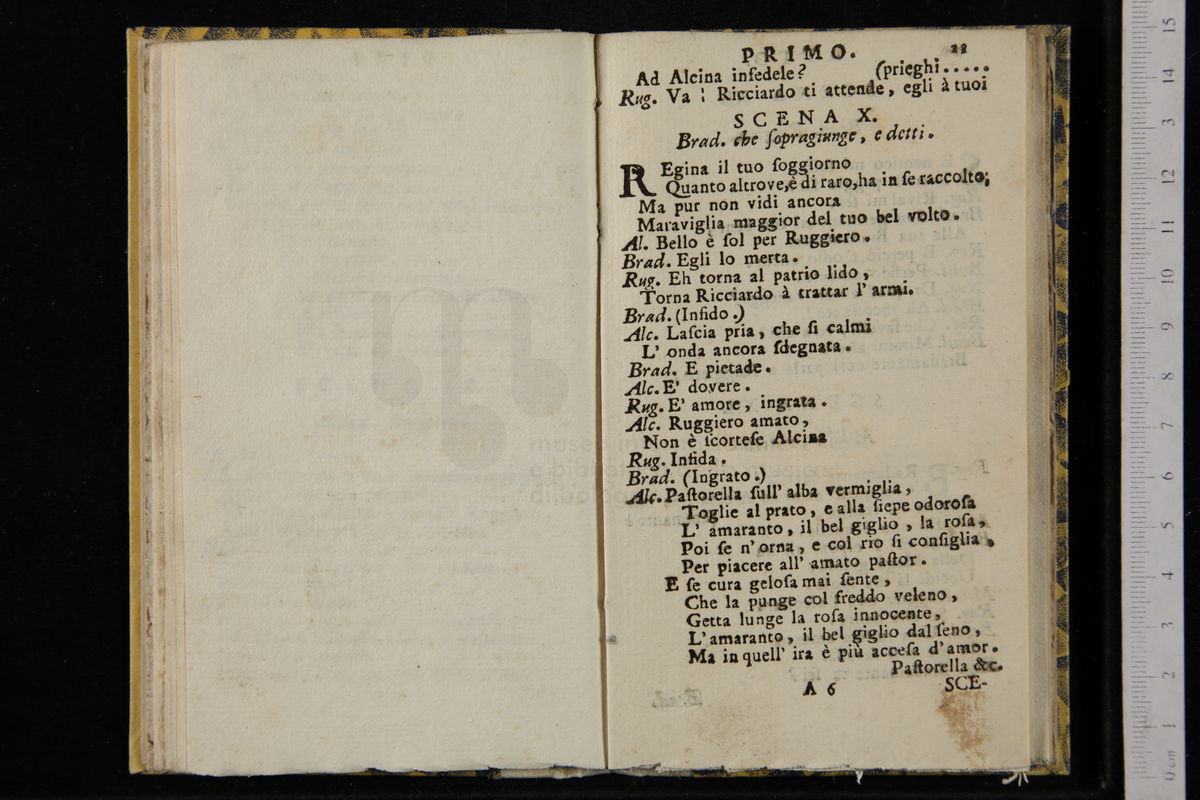 PRIMO.
Ad Alcina infedele? (prieghi.....
Rug. Va ! Ricciardo ti attende, egli à tuoi
SCENA X.
Brad. che ſopragiunge, e detti.
REgina il tuo ſoggiorno
Quanto altrove,è di raro,ha in ſe raccolto;
Ma pur non vidi ancora
Maraviglia maggior del tuo bel volto.
Al. Bello è ſol per Ruggiero.
Brad. Egli lo merta.
Rug. Eh torna al patrio lido,
Torna Ricciardo à trattar l' armi.
Brad. (Infido.)
Alc. Laſcia pria, che ſi calmi
L' onda ancora ſdegnata.
Brad. E pietade.
Alc. E' dovere.
Rug. E' amore, ingrata.
Alc. Ruggiero amato,
Non è ſcorteſe Alcina
Rug. Infida.
Brad. (Ingrato.)
Alc. Paſtorella ſull' alba vermiglia,
Toglie al prato, e alla ſiepe odoroſa
L' amaranto, il bel giglio, la roſa,
Poi ſe n' orna, e col rio ſi conſiglia,
Per piacere all' amato paſtor.
E ſe cura geloſa mai ſente,
Che la punge col freddo veleno,
Getta lunge la roſa innocente,
L'amaranto, il bel giglio dal ſeno,
Ma in quell' ira è più acceſa d'amor.
Paſtorella &c.
A 6 SCE-